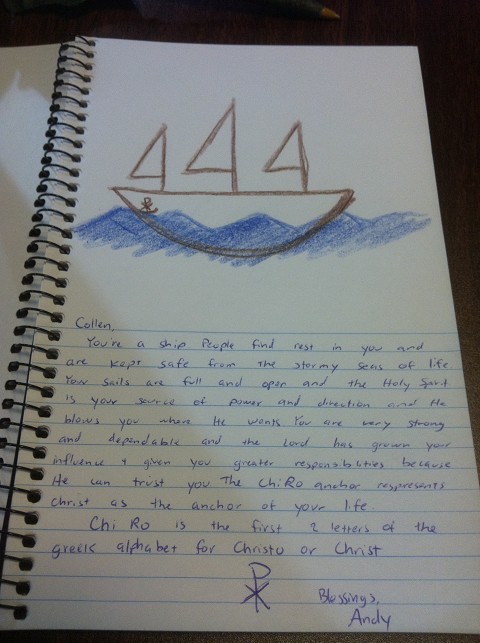 Collen,
You're a ship People find rest in you and
are kept safe from the stormy seas of life
Your sails are full and open and the Holy Spirit
is your source of power and direction and He
blows you where He wants You are very strong
and dependable and the Lord has grown your
influence & given you greater responsibilities because
He can trust you The Chi Ro anchor respresents
Christ as the anchor of your life.
Chi Ro is the first 2 letters of the
greek alphabet for Christu or Christ
Blessings,
Andy